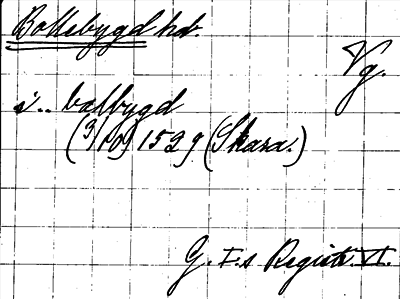 Bollebygd hd.
Vg.
i.. balbygd
(3/10) 1529 (Skara.)
G. I.s Registr. VI.